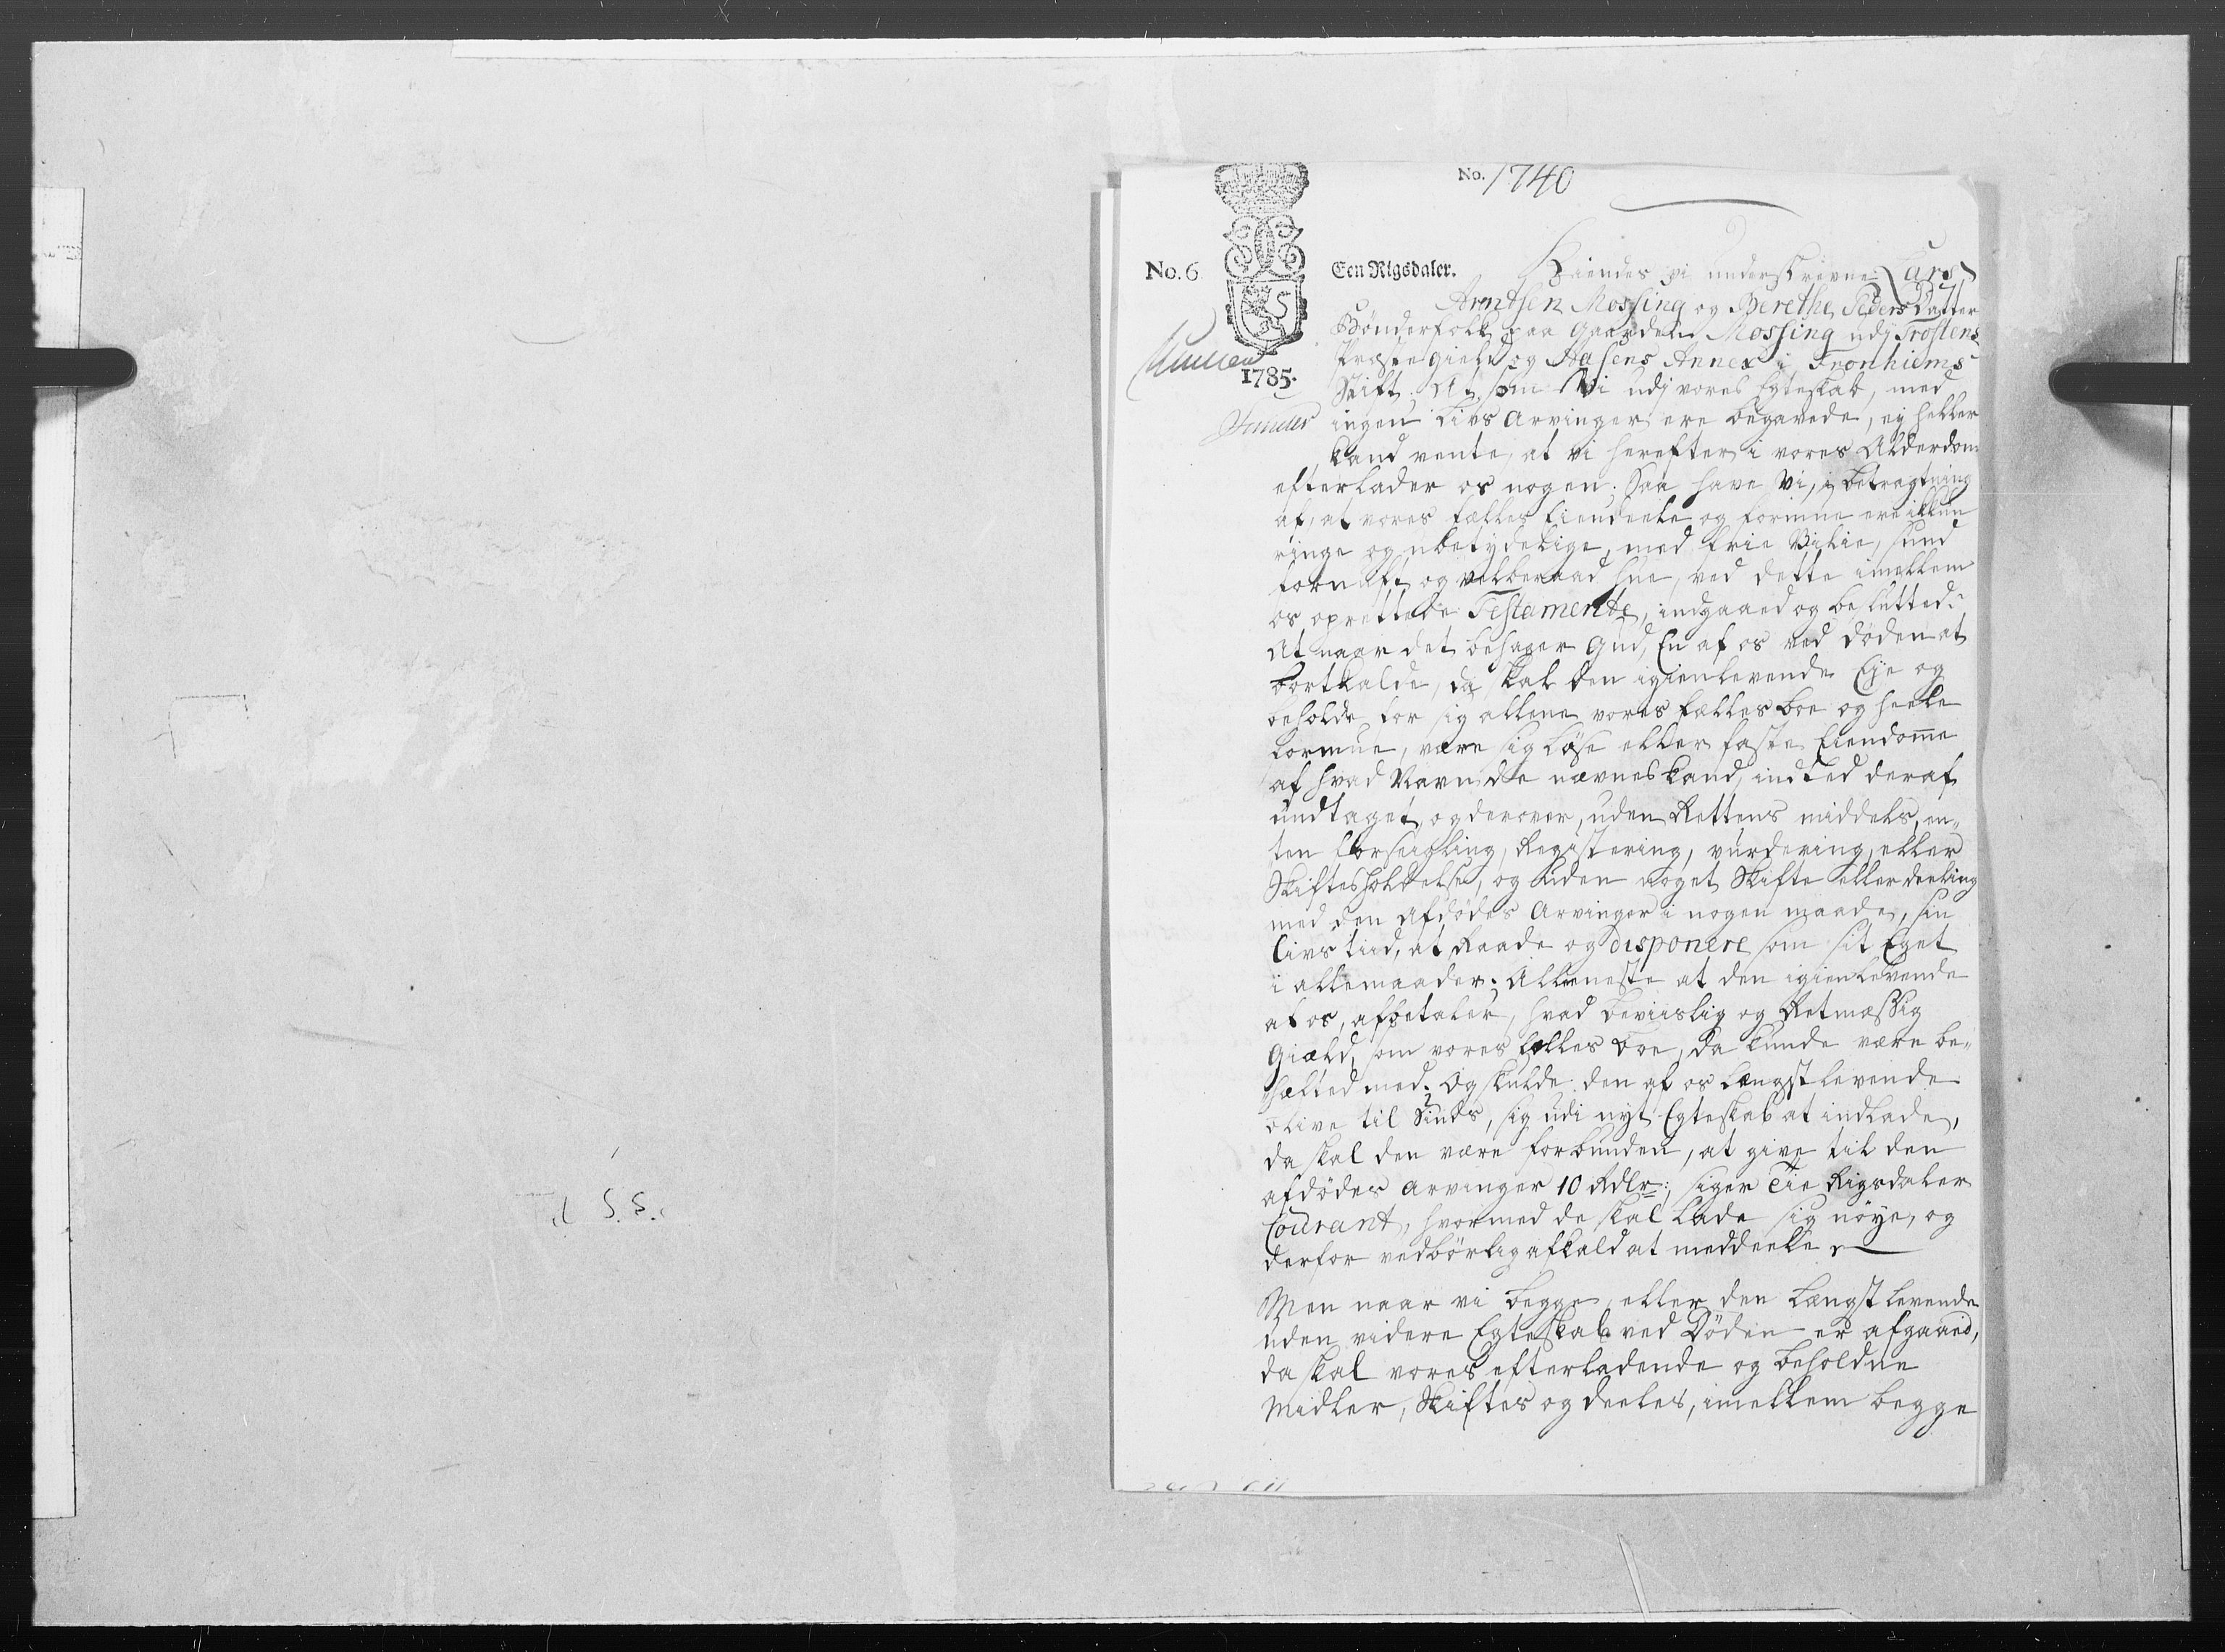 No. 1740
No. 6
Een Rigsdaler.
1785.
Kiendes vi underskrevne Lars
Arntsen Mossing og Berethe Peders Datter
Bønderfolk paa Gaarden Mossing udj Frostens
Præstegield og Aasens Annex i Tronhiems
Stift. At som Vi udj vores Egteskab, med
ingen Livs Arvinger ere begavede, ey heller
kand vente, at vi herefter i vores Alderdom
efterlader os nogen; Saa have Vi, i betragtning
af, at vores fælles Eiendeele og formue ere ikkun
ringe og ubetydelige, med frie Vilie, sund
fornuft og velberaad hue, ved dette imellem
os oprettede Testamente, indgaaed og beslutted:
At naar det behager Gud, En af os ved døden at
bortkalde, da skal den igienlevende Eje og
beholde for sig allene vores fælles boe og heele
formue, være sig løse eller faste Eiendomme
af hvad Navn de nævnes kand, indted deraf
undtaget, og derover, uden Rettens middels, en-
ten forseigling, Registering, vurdering, eller
Skiftesholdelse, og uden noget Skifte eller deeling
med den afdødes Arvinger i nogen maade, sin
livs tiid, at Raade og disponere som sit Eget
i allemaader; Alleeneste at den igienlevende
af os, afbetaler, hvad beviislig og Retmæssig
Giæld, som vores fælles boe, da kunde være be-
hæfted med. Og skulde den af os længstlevende
blive til Sinds, sig udi nyt Egteskab at indlade,
da skal den være forbunden, at give til den
afdødes arvinger 10 Rdlr:, siger Tie Rigsdaler
Courant, hvormed de skal lade sig nøye, og
derfor vedbørlig afkald at meddeele.
Men naar vi begge, eller den længstlevende
uden videre Egteskab ved Døden er afgaaed,
da skal vores efterladende og beholdne
Midler, Skiftes og deeles, imellem begge